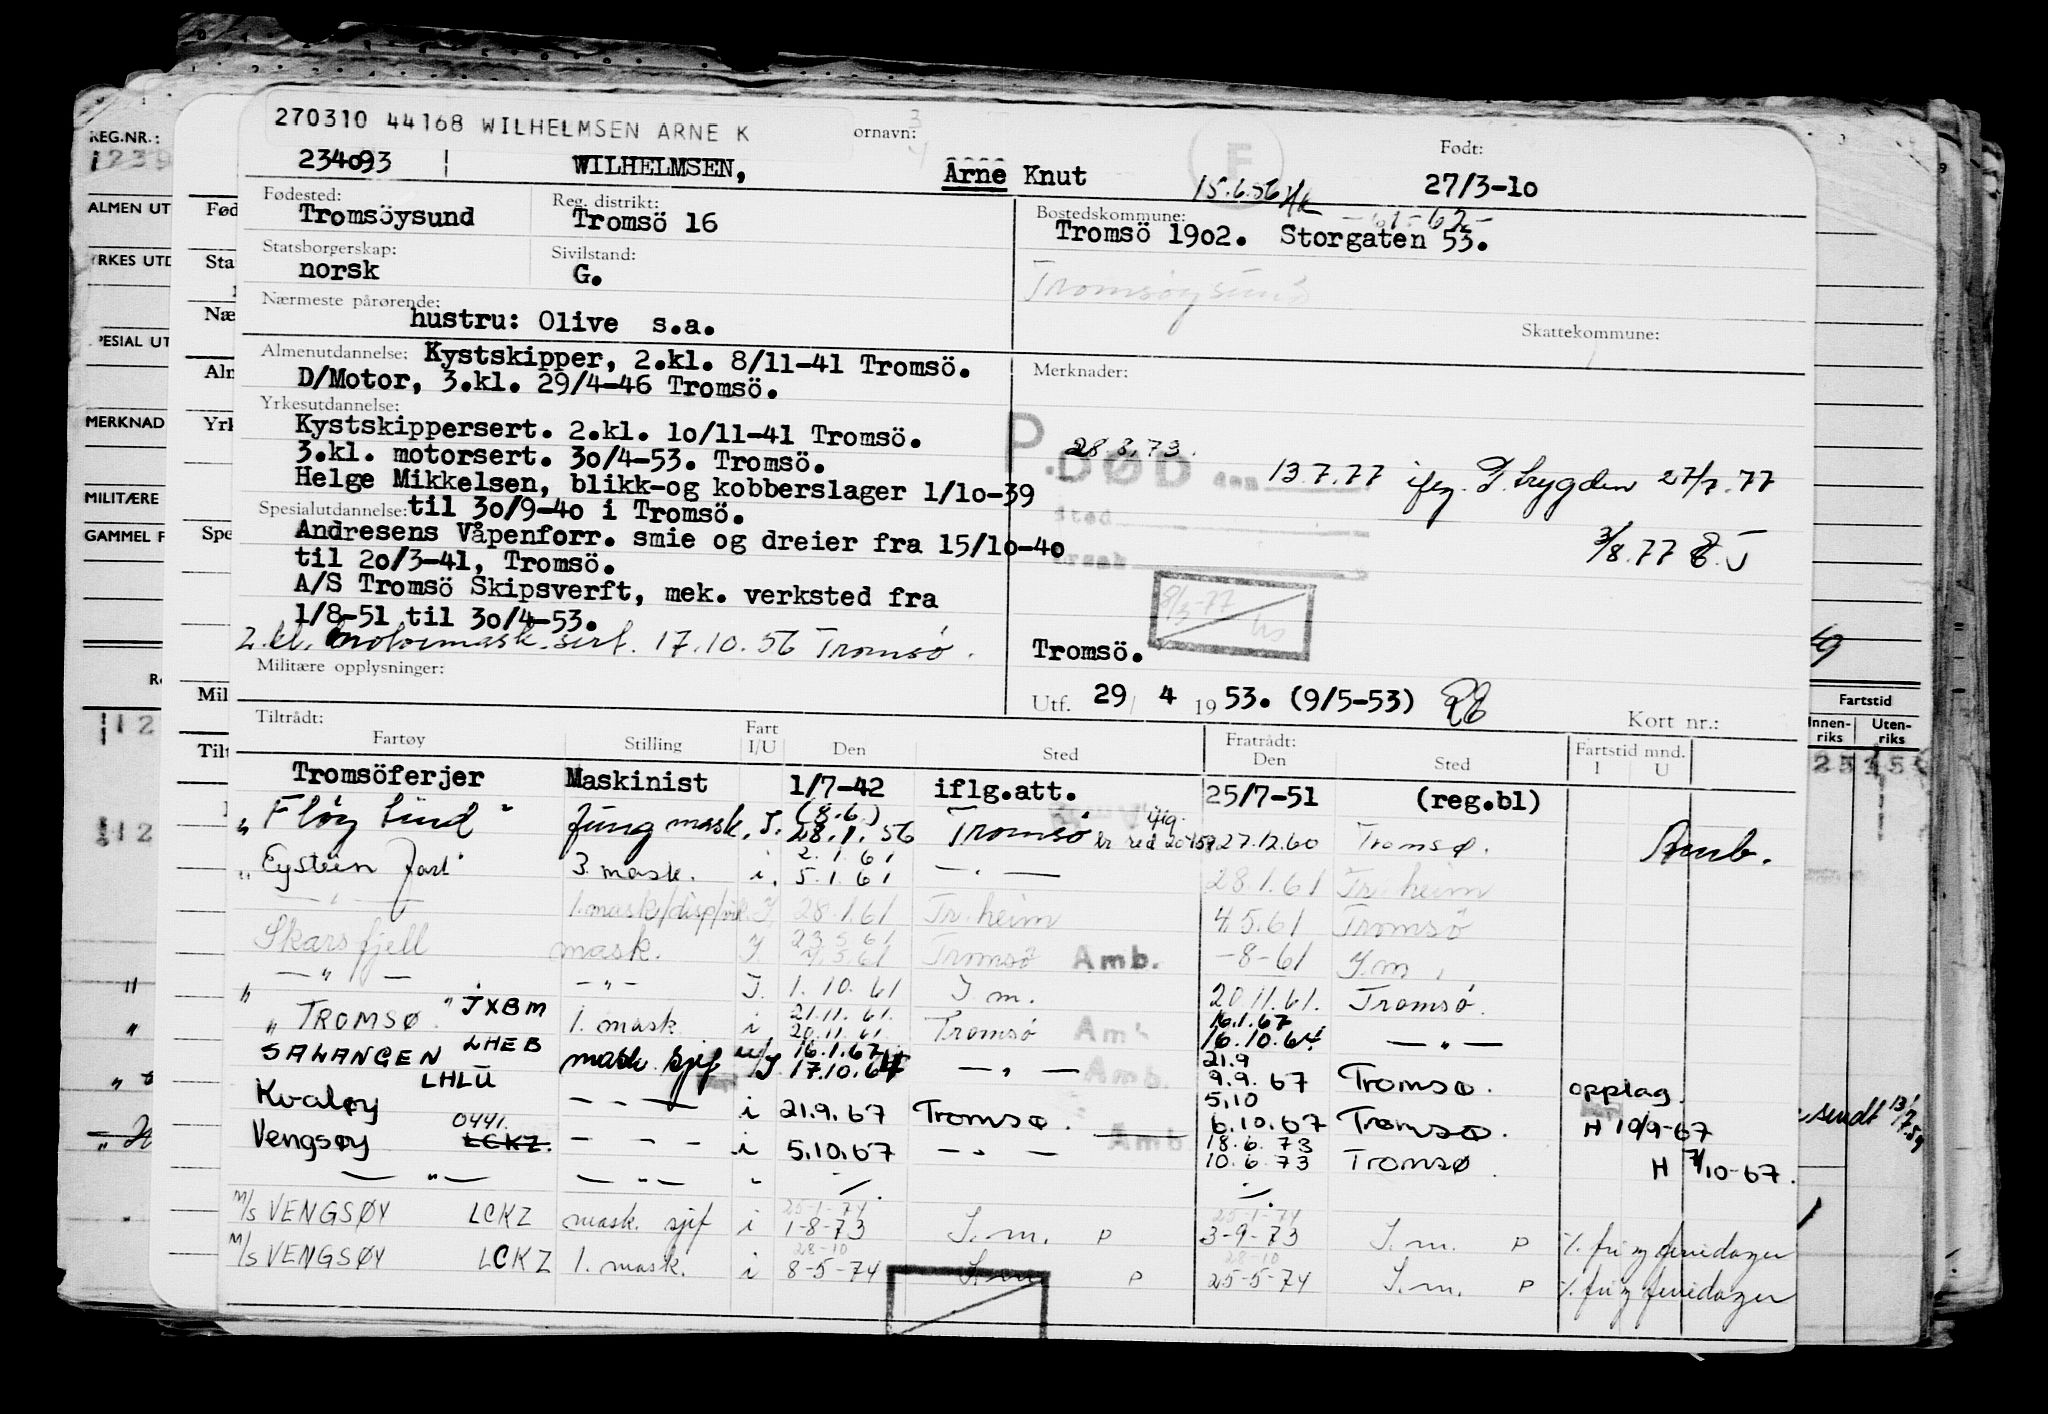 270310 44168 WILHELMSEN ARNE K
ornavn:
Født:
REG.NR.:
234093 WILHELMSEN, Arne Knut 15.6.56 27/3-10
Fødested: Reg. distrikt: Bostedskommune: -61-62-
Tromsöysund Tromsö 16 Tromsö 1902. Storgaten 53.
Statsborgerskap: Sivilstand:
norsk G. Tromsøysund
Nærmeste pårørende:
hustru: Olive s.a. Skattekommune:
Almenutdannelse: Kystskipper, 2.kl. 8/11-41 Tromsö.
D/Motor, 3.kl. 29/4-46 Tromsö. Merknader:
Yrkesutdannelse:
Kystskippersert. 2.kl. 10/11-41 Tromsö.
3.kl. motorsert. 30/4-53. Tromsö. P. 28.8.73.
Helge Mikkelsen, blikk-og kobberslager 1/10-39 DØD den 13.7.77 iflg. T. trygden 27/7.77
Spesialutdannelse: til 30/9-40 i Tromsö. sted
Andresens Våpenforr. smie og dreier fra 15/10-40 3/8.77
til 20/3-41, Tromsö.
A/S Tromsö Skipsverft, mek. verksted fra
1/8-51 til 30/4-53.
2. kl. motormask.sert. 17.10.56 Tromsø. Tromsö.
Militære opplysninger:
Utf. 29/ 4 1953. (9/5-53) Kort nr.:
Tiltrådt: Fratrådt:
Fartøy Stilling Fart I/U Den Sted Den Sted Fartstid mnd. I U
Tromsöferjer Maskinist 1/7-42 iflg.att. 25/7-51 (reg.bl)
"Fløy Sund" Jung mask. I. (8.6.) 28.1.56 Tromsø 27.12.60 Tromsø. Amb.
"Eystein Jarl" 3. mask. i. 2.1.61 5.1.61 — " — 28.1.61 Tr.heim
— " — 1. mask/disp/vik. I 28.1.61 Tr.heim 4.5.61 Tromsö
Skarsfjell mask. I. 23.5.61 Tromsö Amb. -8-61 I.m.
— " — - " - I. 1.10.61 I m. 20.11.61. Tromsö.
"TROMSØ" JXBM 1. mask i 21.11.61. 20.11.61. Tromsö Amb 16.1.67 16.10.64 — " —
SALANGEN LHEB mask. sjef I 16.1.67 17.10.64 — " — Amb. 21.9 9.9.67 Tromsø. opplag.
Kvaløy LHLU — " — i 21.9.67 Tromsø. 5.10 6.10.67 Tromsø. H 10/9-67
Vengsøy 0441. LCKZ. — " — i 5.10.67 — " — Amb 18.6.73 10.6.73 Tromsø. H 7/10-67.
— " — — " — "
M/S VENGSØY LCKZ mask. sjef i 25-1-74 1-8-73 I.m. P 25-1-74 3-9-73 I.m. P %. fri og feriedager
M/S VENGSØY LCKZ 1. mask. i 28-10 8-5-74 I.m. P 28-10 25-5-74 I.m. P %. fri og feriedager
ALMEN UT
YRKES UTD
MERKNAD
MILITÆRE
GAMMEL F
Fartstid
Innen-riks Uten-riks
sendt 13/7.59